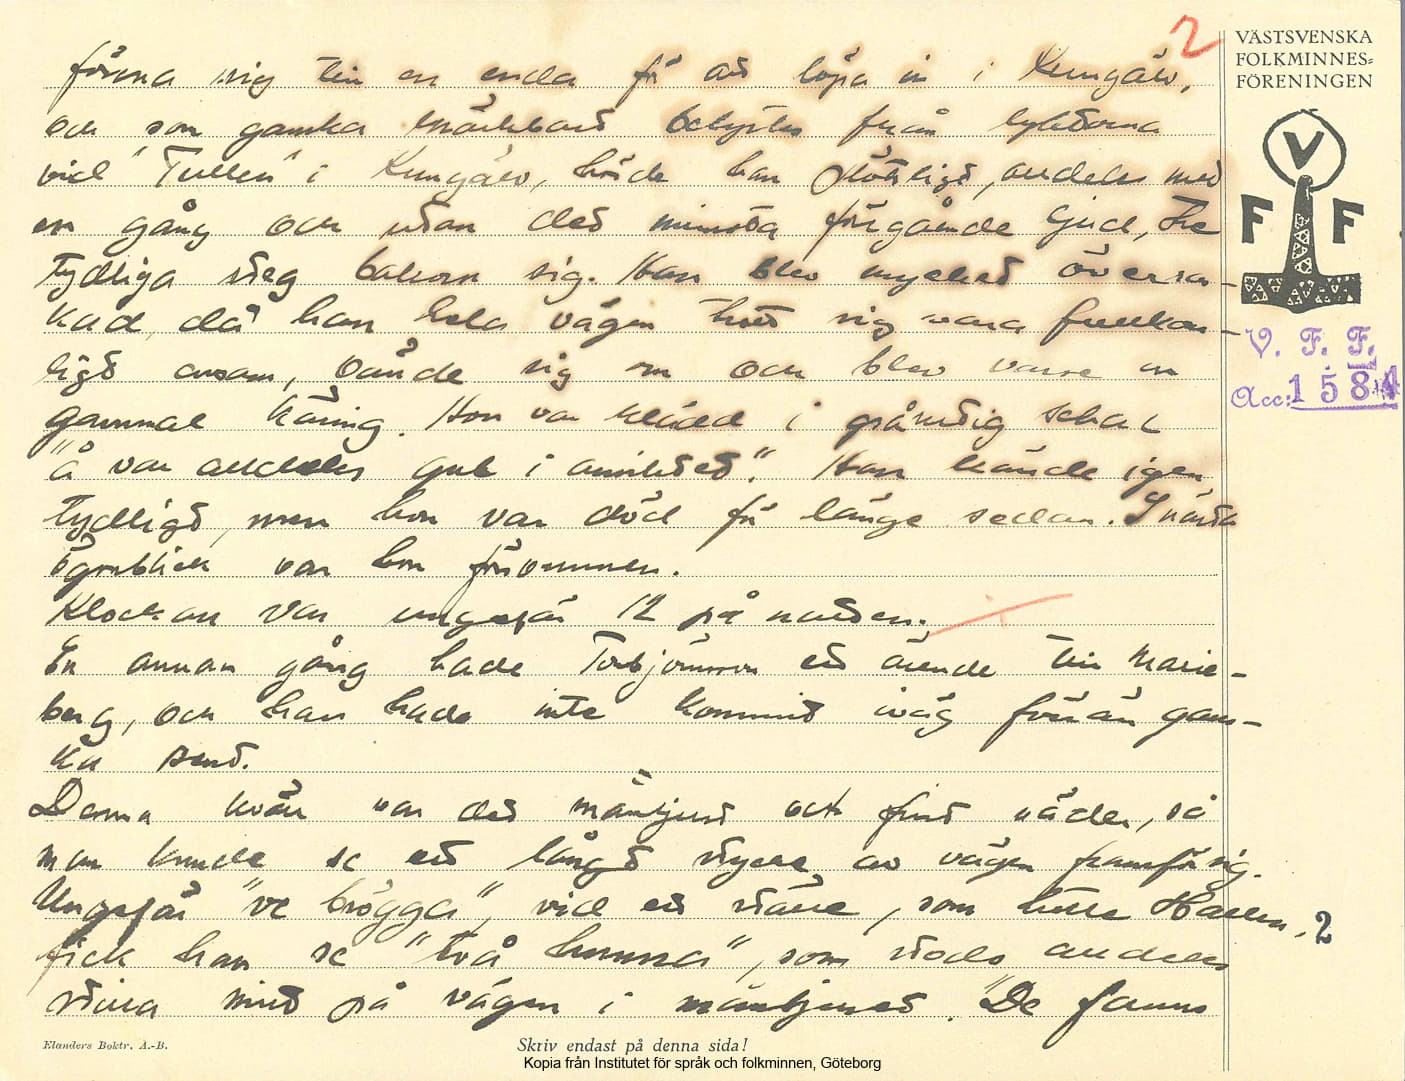 2
VÄSTSVENSKA
FOLKMINNES-
FÖRENINGEN
V
F F
V. F. F.
Acc: 1584
sig till en enda för att löpa in i Kungälv,
och som ganska märkbart belystes från lyktorna
vid "Tullen" i Kungälv, hörde han plötsligt, alldeles med
en gång och utan det minsta föregående ljud, tre
tydliga steg bakom sig. Han blev mycket överras-
kad, då han hela vägen trott sig vara fullkom-
ligt ensam, vände sig om och blev varse en
gammal käring. Hon var klädd i gråaktig schal
"å var alldeles gul i ansiktet". Han kände igen
tydligt, men hon var död för länge sedan. I nästa
ögonblick var hon försvunnen.
Klockan var ungefär 12 på natten.
En annan gång hade Torbjörnsson ett ärende till Marie-
berg, och han hade inte kommit iväg förrän gans-
ka sent.
Denna kväll var det månljust och fint väder, så
man kunde se ett långt stycke av vägen framför sig.
Ungefär "ve brögga", vid ett ställe, som hette Hallen,
fick han se "två hunna", som stodo alldeles
stilla mitt på vägen i månljuset. "De fanns
2
Elanders Boktr. A.-B.
Skriv endast på denna sida!
Kopia från Institutet för språk och folkminnen, Göteborg